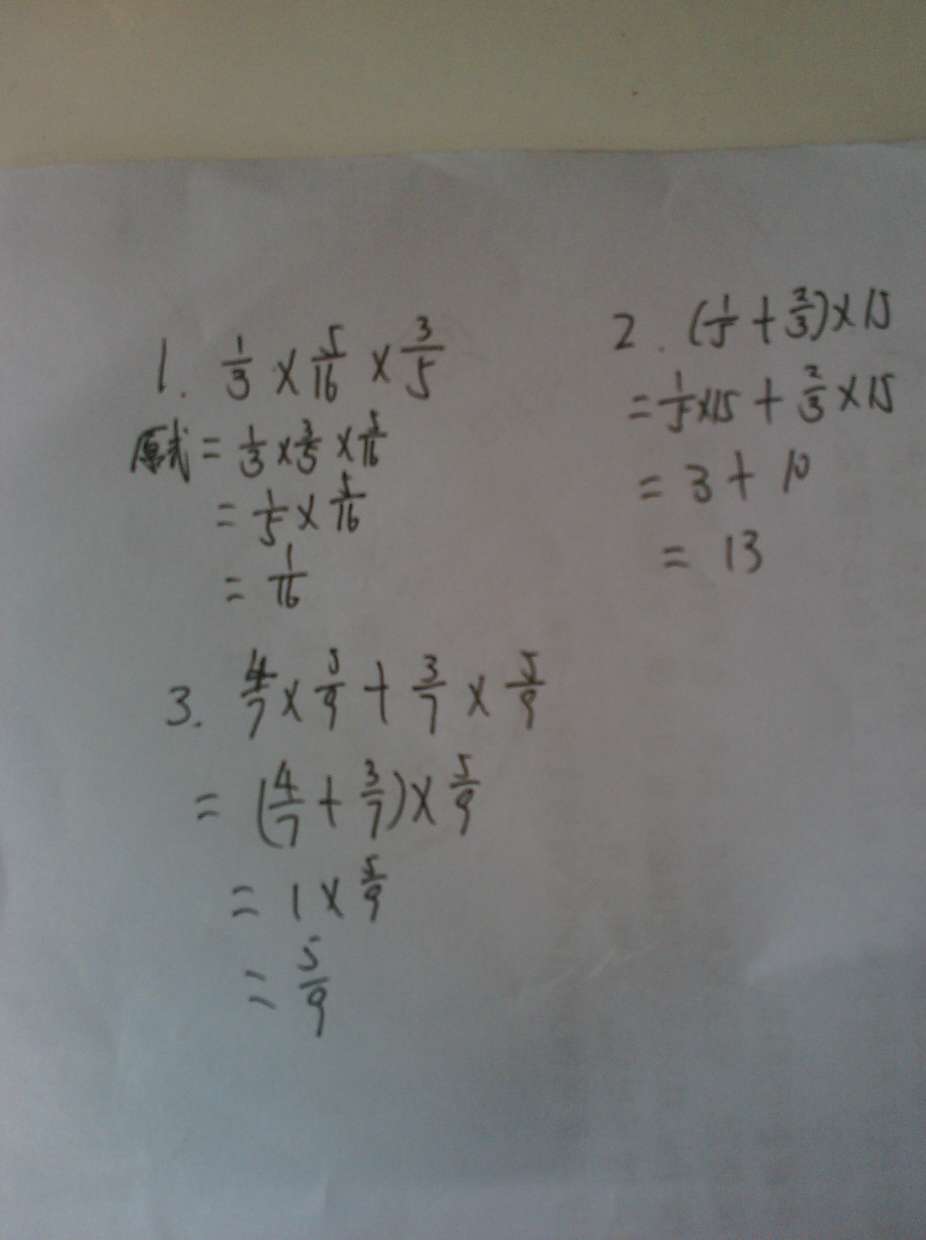 1. 1/3 × 5/16 × 3/5
原式 = 1/3 × 3/5 × 5/16
= 1/5 × 5/16
= 1/16
2. (1/5 + 2/3) × 15
= 1/5 × 15 + 2/3 × 15
= 3 + 10
= 13
3. 4/7 × 5/9 + 3/7 × 5/9
= (4/7 + 3/7) × 5/9
= 1 × 5/9
= 5/9